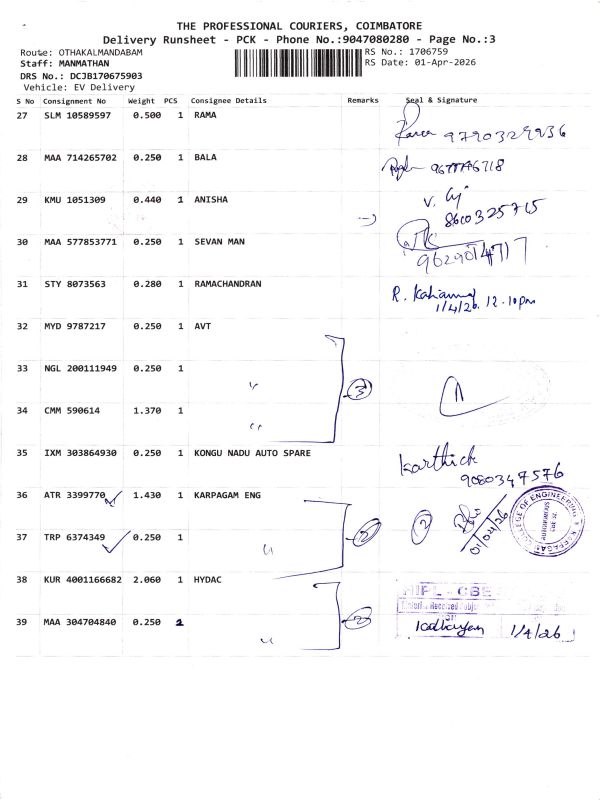 THE PROFESSIONAL COURIERS, COIMBATORE
Delivery Runsheet - PCK - Phone No.:9047080280 - Page No.:3
Route: OTHAKALMANDABAM
RS No.: 1706759
Staff: MANMATHAN
RS Date: 01-Apr-2026
DRS No.: DCJB170675903
Vehicle: EV Delivery
S No Consignment No Weight PCS Consignee Details Remarks Seal & Signature
27 SLM 10589597 0.500 1 RAMA
9790329936
28 MAA 714265702 0.250 1 BALA
29 KMU 1051309 0.440 1 ANISHA
8610325715
30 MAA 577853771 0.250 1 SEVAN MAN
31 STY 8073563 0.280 1 RAMACHANDRAN
1/4/26. 12.10pm
32 MYD 9787217 0.250 1 AVT
33 NGL 200111949 0.250 1
3
34 CMM 590614 1.370 1
35 IXM 303864930 0.250 1 KONGU NADU AUTO SPARE
Karthick
9080347576
36 ATR 3399770 1.430 1 KARPAGAM ENG
2 2 01/04/26
COLLEGE OF ENGINEERING
37 TRP 6374349 0.250 1
38 KUR 4001166682 2.060 1 HYDAC
HIPL - CBE
39 MAA 304704840 0.250 2
2
1/4/26